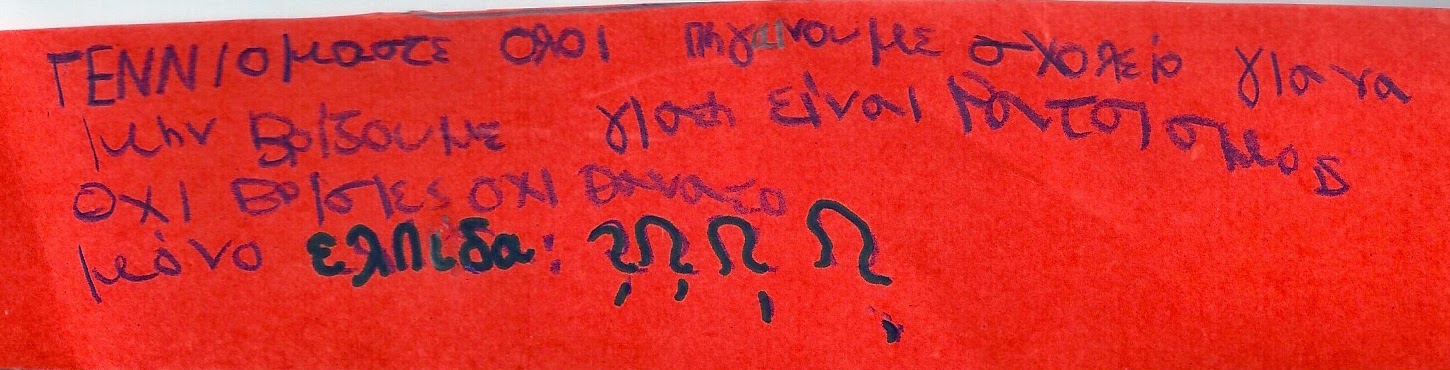 ΓΕΝΝΙομαστε ολοι πηγαινουμε σχολείο για να
μην βρίζουμε γιατι είναι Ρατσισμος
οχι βρισιες οχι θανατο
μόνο ελπιδα: